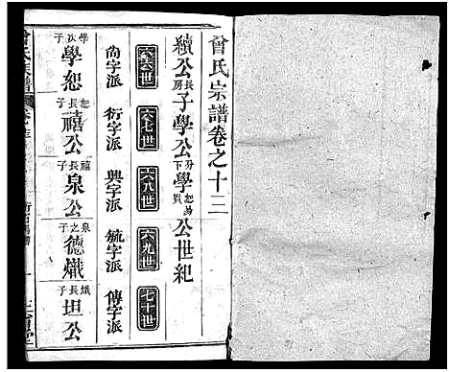 曾氏宗譜卷之十三
續公長房子學公分下學恕公世紀
六六世 六七世 六八世 六九世 七十世
尚字派 衍字派 興字派 毓字派 傳字派
學次子 學恕 恕長子 禧公 禧長子 泉公 泉之子 德熾 熾長子 坦公
曾氏宗譜